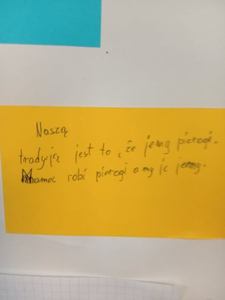 Naszą
tradycją jest to, że jemy pierogi.
Mama robi pierogi a my je jemy.